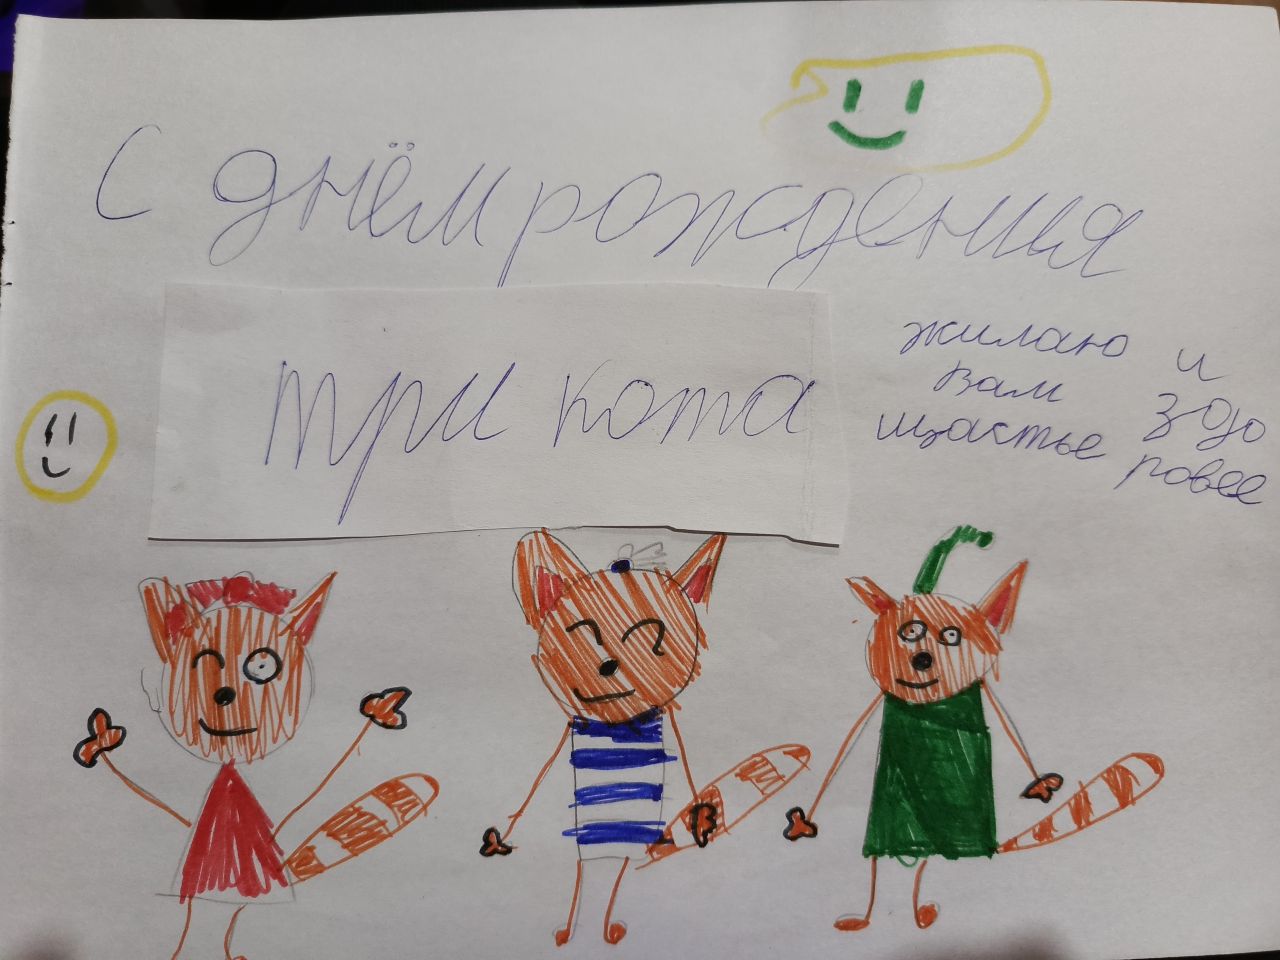 С днём рождения
три кота
жилаю и
вам здо
щастье ровее